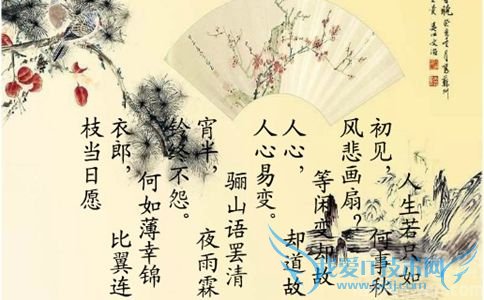 人生若只如
初见， 何事秋
风悲画扇？
等闲变却故
人心， 却道故
人心易变。
骊山语罢清
宵半， 夜雨霖
铃终不怨。
何如薄幸锦
衣郎， 比翼连
枝当日愿
我爱IT技术网